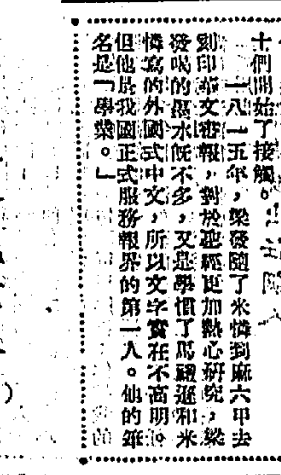 十們開始了接觸。
一八一五年，梁發隨了米憐到麻六甲去
刻印華文書報，對於聖經更加熱心研究，梁
發喝的墨水旣不多，又是學慣了馬禮遜和米
憐寫的外國式中文，所以文字實在不高明。
但他是我國正式服務報界的第一人。他的筆
名是「學。」